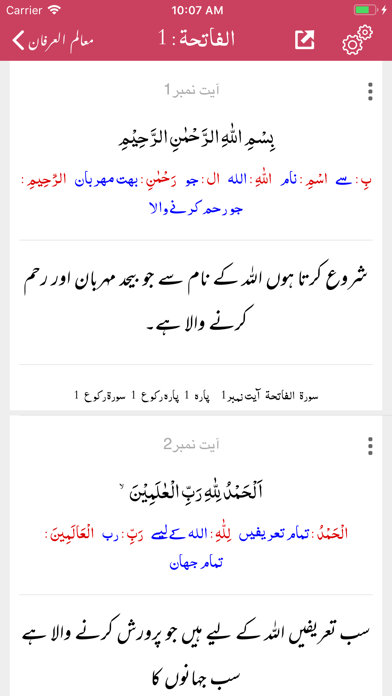 Carrier 10:07 AM
معالم العرفان الفاتحة : 1
آیت نمبر1
بِسْمِ اللهِ الرَّحْمٰنِ الرَّحِيْمِ
بِ : سے اسْمِ : نام اللهِ : الله ال : جو رَحْمٰنِ : بهت مهربان الرَّحِيمِ :
جو رحم کرنے والا
شروع کرتا ہوں اللہ کے نام سے جو بیحد مہربان اور رحم
کرنے والا ہے۔
سورة الفاتحة آیت نمبر1 پاره 1 پاره رکوع 1 سورة رکوع 1
آیت نمبر2
اَلْحَمْدُ لِلّٰهِ رَبِّ الْعٰلَمِيْنَ ۙ
الْحَمْدُ : تمام تعریفیں لِلّٰهِ : الله کے لیے رَبِّ : رب الْعَالَمِينَ :
تمام جهان
سب تعریفیں اللہ کے لیے ہیں جو پرورش کرنے والا ہے
سب جہانوں کا